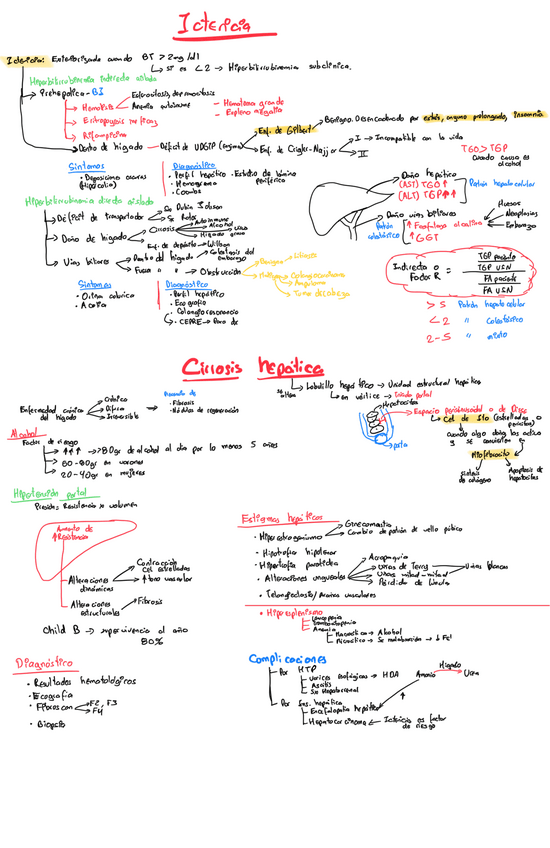 Ictericia
Ictericia: Exteriorizada cuando BT > 2mg/dl
↳ si es < 2 → Hiperbilirrubinemia subclínica.
Hiperbilirrubinemia indirecta aislada
→ Prehepatico - BI
→ Hemolisis
Anemia autoinmune
- Hematoma grande
- Espleno megalia
→ Eritropoyesis ineficaz
→ Rifampicina
→ Daño de hígado → Déficit de UDGTP (enzima)
Enf. de Gilbert → Benigno. Desencadenado por estrés, ayuno prolongado, insomnia
Enf. de Crigler-Najjar
I → Incompatible con la vida
II
TGO > TGP
Cuando causa es alcohol
Síntomas
Diagnóstico
• Perfil hepático
• Hemograma
• Coombs
• Estudio de lámina periférica
Daño hepático
(AST) TGO ↑
(ALT) TGP ↑↑
Patrón hepatocelular
Daño vías biliares
↑ Fosfatasa alcalina
↑ GGT
Patrón colestásico
Huesos
Neoplasias
Embarazo
Hiperbilirrubinemia directa aislada
→ Déficit de transportador
Sx Dubin Johnson
Sx Rotor
→ Daño de hígado
Cirrosis
Autoinmune
Alcohol
Virus
Hígado graso
Enf. de depósito → Wilson
→ Vías biliares
Dentro del hígado → Colestasis del embarazo
Fuera " " → Obstrucción
Benigna → Litiasis
Maligna
Colangiocarcinoma
Ampuloma
Tumor de cabeza
Síntomas
• Orina colurica
• Acolia
Diagnóstico
• Perfil hepático
• Ecografía
• Colangioresonancia
Indirecta o
Factor R =
TGP paciente
TGP USN
FA paciente
FA USN
> 5 Patrón hepatocelular
< 2 " Colestásico
2-5 " mixto
Cirrosis hepática
Enfermedad crónica del hígado
Crónica
Difusa
Irreversible
Aumento de
• Fibrosis
• Nódulos de regeneración
↳ Lobulillo hepático → Unidad estructural hepática
↳ en vértice → triada portal
Hepatocitos
Espacio perisinusoidal o de Disse
Cel de Ito (estrelladas o
Cuando algo daña las activa y se convierten en
Miofibroblasto
Síntesis de colágeno
Apoptosis de hepatocitos
porta
Alcohol
Factor de riesgo
↑↑↑ → >80gr de alcohol al día por lo menos 5 años
60-80gr en varones
20-40gr en mujeres
Hipertensión portal
Presión = Resistencia x volumen
Aumento de
↑ Resistencia
Alteraciones dinámicas
Contracción cel estrelladas
↑ tono vascular
Alteraciones estructurales → Fibrosis
Child B → supervivencia al año
80%
Diagnóstico
• Resultados hematológicos
• Ecografía
• Fibroscan
F2, F3
F4
• Biopsia
Estigmas hepáticos
• Hiperestrogenismo
Ginecomastia
Cambio de patrón de vello púbico
• Hipotrofia hipotenar
• Hipertrofia parotídea
• Alteraciones ungueales
Acropaquia
Uñas de Terry → Uñas blancas
Uñas mitad-mitad
Pérdida de lúnula
• Telangiectasias/Arañas vasculares
• Hiperesplenismo
Leucopenia
Anemia
Macrocítica → Alcohol
Complicaciones
Por HTP
Varices esofágicas → HDA
Ascitis
Sx Hepatorenal
Amonio → Hígado → Urea
Por Ins. hepática
Encefalopatía hepática
Hepatocarcinoma ← Ictericia es factor de riesgo